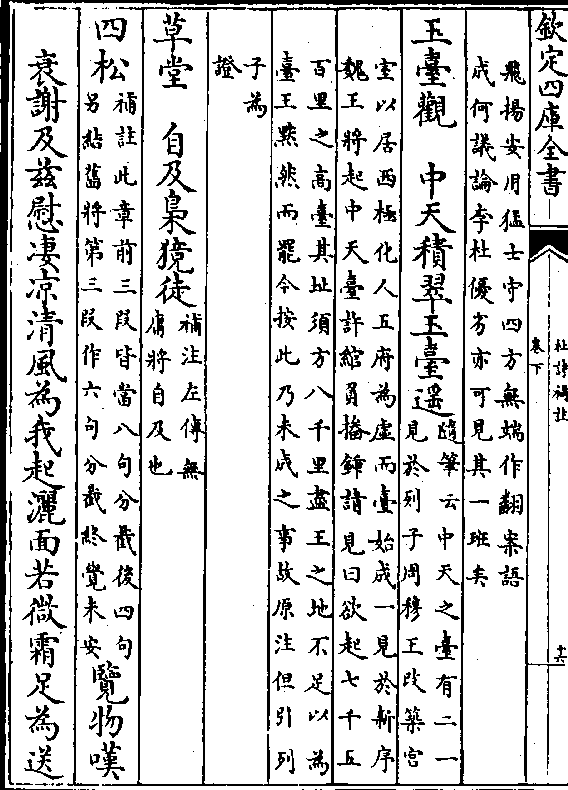 欽定四庫全書
杜詩補註
卷下
十六
飛揚安用猛士守四方無端作翻案語
成何議論李杜優劣亦可見其一班矣
玉臺觀　中天積翠玉臺遥
隨筆云中天之臺有二一
見於列子周穆王改築宫
室以居西極化人五府為虛而臺始成一見於新序
魏王將起中天臺許綰負擔鍤請見曰欲起七千五
百里之高臺其址須方八千里盡王之地不足以為
臺王黙然而罷今按此乃未成之事故原注但引列
子為
證
草堂　自及梟獍徒
補注左傳無
庸將自及也
四松
補註此章前三段皆當八句分截後四句
另結舊將第三段作六句分截終覺未安
覽物嘆
衰謝及兹慰凄凉清風為我起灑面若微霜足為送